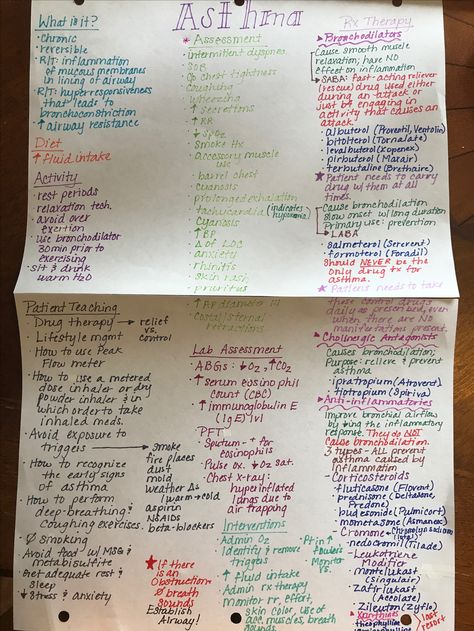 Asthma
What is it?
- Chronic
- reversible
- R/T: inflammation
of mucous membranes
in lining of airway
- R/T: hyperresponsiveness
that leads to
bronchoconstriction
- ↑ airway resistance
Diet
- ↑ fluid intake
Activity
- rest periods
- relaxation tech.
- avoid over
exertion
- use bronchodilator
30 min prior to
exercising
- sit & drink
warm H₂O
* Assessment
- intermittent dyspnea
- SOB
- c/o chest tightness
- Coughing
- wheezing
- ↑ secretions
- ↑ RR
- ↓ SpO₂
- Smoke Hx
- accessory muscle
use
- barrel chest
- cyanosis
- prolonged exhalation
- tachycardia (indicates hypoxemia)
- Cyanosis
- ↑ BP
- Δ of LOC
- anxiety
- rhinitis
- skin rash
- pruritus
- ↑ AP diameter
- Costal/sternal
retractions
Rx Therapy
* Bronchodilators
Cause smooth muscle
relaxation; have NO
effect on inflammation
- SABA: fast-acting reliever
(rescue) drug used either
during an attack or
just b4 engaging in
activity that causes an
attack.
- albuterol (Proventil, Ventolin)
- bitolterol (Tornalate)
- levalbuterol (Xopenex)
- pirbuterol (Maxair)
- terbutaline (Brethaire)
* Patient needs to carry
drug w/ them at all
times.
Cause bronchodilation
slow onset w/ long duration
Primary use: prevention
- LABA
- salmeterol (Serevent)
- formoterol (Foradil)
Should NEVER be the
only drug tx for
asthma.
* Patients need to take
these control drugs
daily as prescribed, even
when there are NO
manifestations present.
* Cholinergic Antagonists
Causes bronchodilation;
Purpose: relieve & prevent
asthma
- ipratropium (Atrovent)
- tiotropium (Spiriva)
* Anti-inflammatories
Improve bronchial airflow
by ↓ing the inflammatory
response. They do NOT
cause bronchodilation.
3 types - ALL prevent
asthma caused by
inflammation
- Corticosteroids
- fluticasone (Flovent)
- prednisone (Deltasone, Predone)
- budesonide (Pulmicort)
- mometasone (Asmanex)
- Cromone
- nedocromil (Tilade)
- Leukotriene
Modifier
- montelukast
(Singulair)
- zafirlukast
(Accolate)
- Zileuton (Zyflo)
* Xanthines
- theophylline
last resort
Patient Teaching
- Drug therapy → relief vs. control
- Lifestyle mgmt
- How to use Peak
Flow meter
- How to use a metered
dose inhaler or dry
powder inhaler & in
which order to take
inhaled meds.
- Avoid exposure to
triggers → smoke
fire places
dust
mold
weather Δs
(warm → cold)
aspirin
NSAIDs
beta-blockers
- How to recognize
the early signs
of asthma
- How to perform
deep-breathing &
Coughing exercises.
- Ø smoking
- Avoid food w/ MSG &
metabisulfite
- Get adequate rest &
sleep
- ↓ stress & anxiety
Lab Assessment
- ABGs: ↓O₂ ↑CO₂
- ↑ serum eosinophil
count (CBC)
- ↑ immunoglobulin E
(IgE) lvl
- PFT
- Sputum - ↑ for
eosinophils
- Pulse ox. - ↓ O₂ Sat.
- Chest X-ray:
hyperinflated
lungs due to
air trapping
Interventions
- Admin O₂
- Identify & remove
triggers
- ↑ fluid intake
- Admin rx therapy
- monitor rr, effort,
skin color, use of
acc. muscles, breath
sounds
- Pt in ↑
Fowler's
- Monitor
VS.
★ If there
is an
Obstruction =
Ø breath
sounds
Establish
Airway!